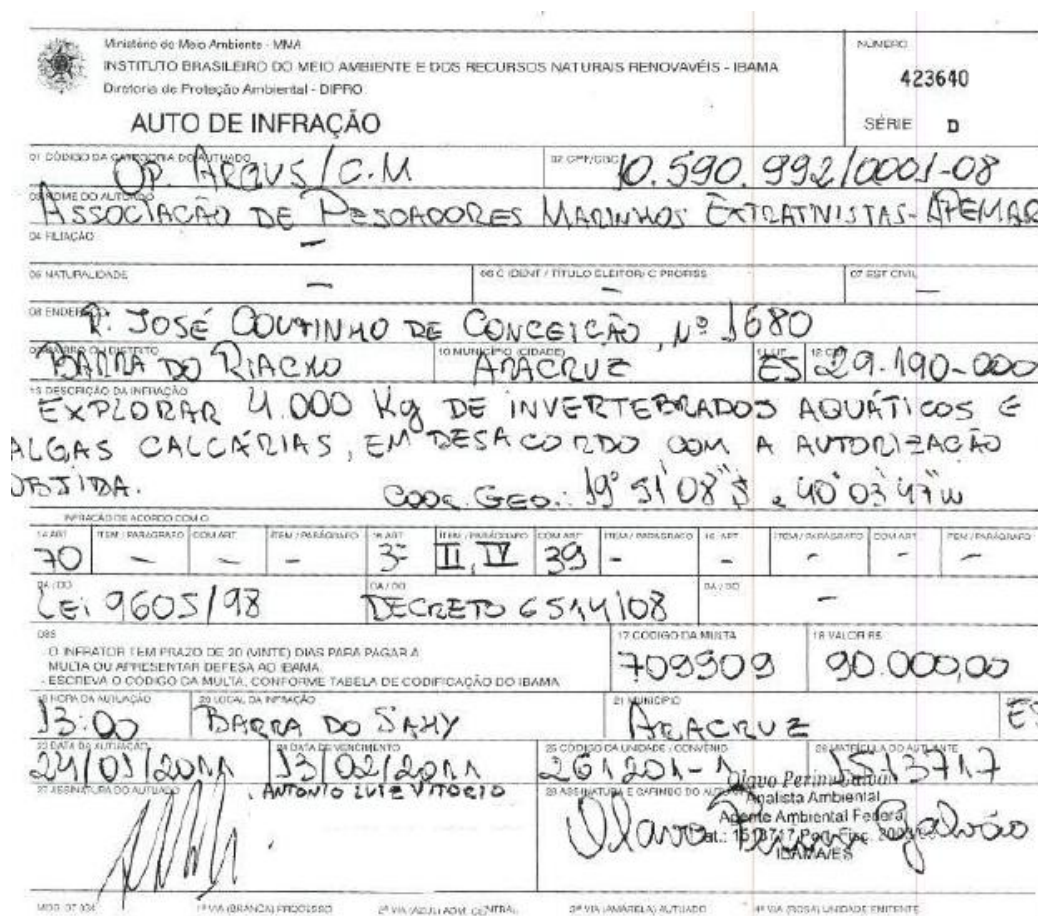 Ministério do Meio Ambiente - MMA
NÚMERO
INSTITUTO BRASILEIRO DO MEIO AMBIENTE E DOS RECURSOS NATURAIS RENOVAVÉIS - IBAMA
423640
Diretoria de Proteção Ambiental - DIPRO
AUTO DE INFRAÇÃO
SÉRIE D
01 CÓDIGO DA CATEGORIA DO AUTUADO
02 CPF/CGC
OP. ARGUS/C.M
10.590.992/0001-08
03 NOME DO AUTUADO
ASSOCIAÇÃO DE PESCADORES MARINHOS EXTRATIVISTAS- APEMAR
04 FILIAÇÃO
-
05 NATURALIDADE
06 C IDENT / TÍTULO ELEITOR/ C PROFISS
07 EST CIVIL
- - -
08 ENDEREÇO
R. JOSÉ COUTINHO DE CONCEIÇÃO, Nº 1680
09 BAIRRO OU DISTRITO
10 MUNICÍPIO (CIDADE)
11 UF
12 CEP
BARRA DO RIACHO
ARACRUZ
ES
29.190-000
13 DESCRIÇÃO DA INFRAÇÃO
EXPLORAR 4.000 Kg DE INVERTEBRADOS AQUÁTICOS E
ALGAS CALCÁRIAS, EM DESACORDO COM A AUTORIZAÇÃO
OBTIDA. COOR. GEO.: 19° 51' 08"S e 40° 03' 47"W
INFRAÇÃO DE ACORDO COM O
14 ART ITEM / PARÁGRAFO COM ART ITEM / PARÁGRAFO 15 ART ITEM / PARÁGRAFO COM ART ITEM / PARÁGRAFO 16 ART ITEM / PARÁGRAFO COM ART ITEM / PARÁGRAFO
70 - - - 3º II, IV 39 - - - - -
DA / DO DA / DO DA / DO
LEI 9605/98 DECRETO 6514/08 -
OBS
17 CÓDIGO DA MULTA
18 VALOR R$
- O INFRATOR TEM PRAZO DE 20 (VINTE) DIAS PARA PAGAR A
MULTA OU APRESENTAR DEFESA AO IBAMA.
- ESCREVA O CÓDIGO DA MULTA, CONFORME TABELA DE CODIFICAÇÃO DO IBAMA
709909
90.000,00
19 HORA DA AUTUAÇÃO
20 LOCAL DA INFRAÇÃO
21 MUNICÍPIO
13:00
BARRA DO SAHY
ARACRUZ
ES
23 DATA DA AUTUAÇÃO
24 DATA DE VENCIMENTO
25 CÓDIGO DA UNIDADE / CONVÊNIO
26 MATRÍCULA DO AUTUANTE
24/01/2011
13/02/2011
261201-1
1513717
27 ASSINATURA DO AUTUADO
ANTONIO LUIZ VITORIO
28 ASSINATURA E CARIMBO DO AUTUANTE
Olavo Perim Galvão
Analista Ambiental
Agente Ambiental Federal
Mat.: 1513717 Port. Fisc.
IBAMA/ES
Olavo Perim Galvão
1ª VIA (BRANCA) PROCESSO
2ª VIA (AZUL) ADM. CENTRAL
3ª VIA (AMARELA) AUTUADO
4ª VIA (ROSA) UNIDADE EMITENTE